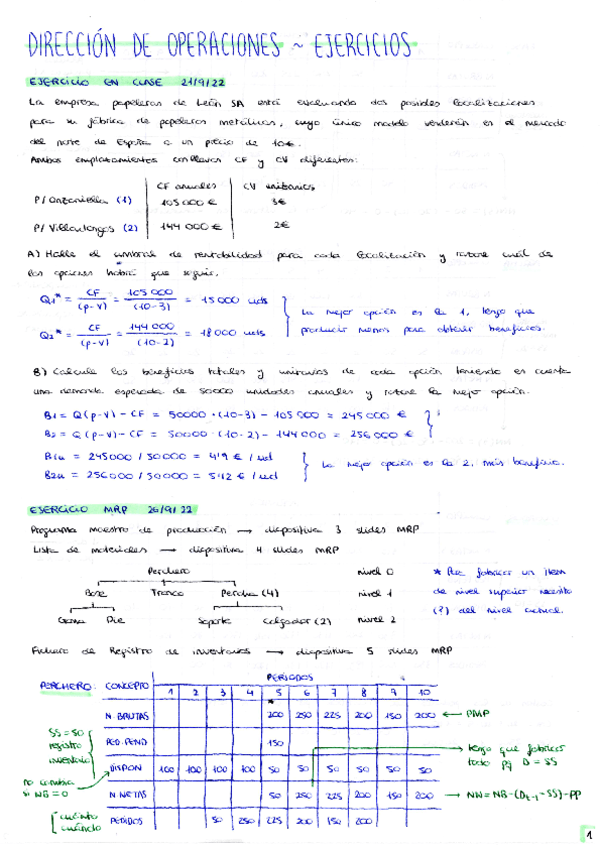 DIRECCIÓN DE OPERACIONES ~ EJERCICIOS
EJERCICIO EN CLASE 21/9/22
La empresa papeleras de León SA está evaluando dos posibles localizaciones
para su fábrica de papeleras metálicas, cuyo único modelo venderán en el mercado
del norte de España a un precio de 10€.
Ambos emplazamientos conllevan CF y CV diferentes:
CF anuales CV unitarios
P/ Onzonilla (1) 105 000 € 3€
P/ Villadangos (2) 144 000 € 2€
A) Halle el umbral de rentabilidad para cada localización y razone cuál de
las opciones habrá que seguir.
Q1* = CF / (p-v) = 105 000 / (10-3) = 15 000 uds
Q2* = CF / (p-v) = 144 000 / (10-2) = 18 000 uds
La mejor opción es la 1, tengo que
producir menos para obtener beneficios.
B) Calcule los beneficios totales y unitarios de cada opción teniendo en cuenta
una demanda esperada de 50000 unidades anuales y razone la mejor opción.
B1 = Q(p-v) - CF = 50000 · (10-3) - 105 000 = 245 000 €
B2 = Q(p-v) - CF = 50000 · (10-2) - 144 000 = 256 000 €
B1u = 245000 / 50000 = 4'9 € / ud
B2u = 256000 / 50000 = 5'12 € / ud
La mejor opción es la 2, más beneficio.
EJERCICIO MRP 26/9/22
Programa maestro de producción → diapositiva 3 slides MRP
Lista de materiales → diapositiva 4 slides MRP
Perchero nivel 0
Base Tronco Percha (4) nivel 1
Goma Pie Soporte Colgador (2) nivel 2
* Para fabricar un ítem
de nivel superior necesito
(?) del nivel actual.
Fichero de Registro de inventarios → diapositiva 5 slides MRP
PERCHERO:
CONCEPTO PERIODOS
1 2 3 4 5 6 7 8 9 10
*
N. BRUTAS 200 250 225 200 150 200 ← PMP
PED. PEND 150
DISPON 100 100 100 100 50 50 50 50 50 50
N. NETAS 50 250 225 200 150 200 → NN = NB - (Dt-1 - SS) - PP
PEDIDOS 50 250 225 200 150 200
SS = 50
registro
inventario
no cambia
si NB = 0
cuánto
cuándo
tengo que fabricar
todo pq D = SS
1